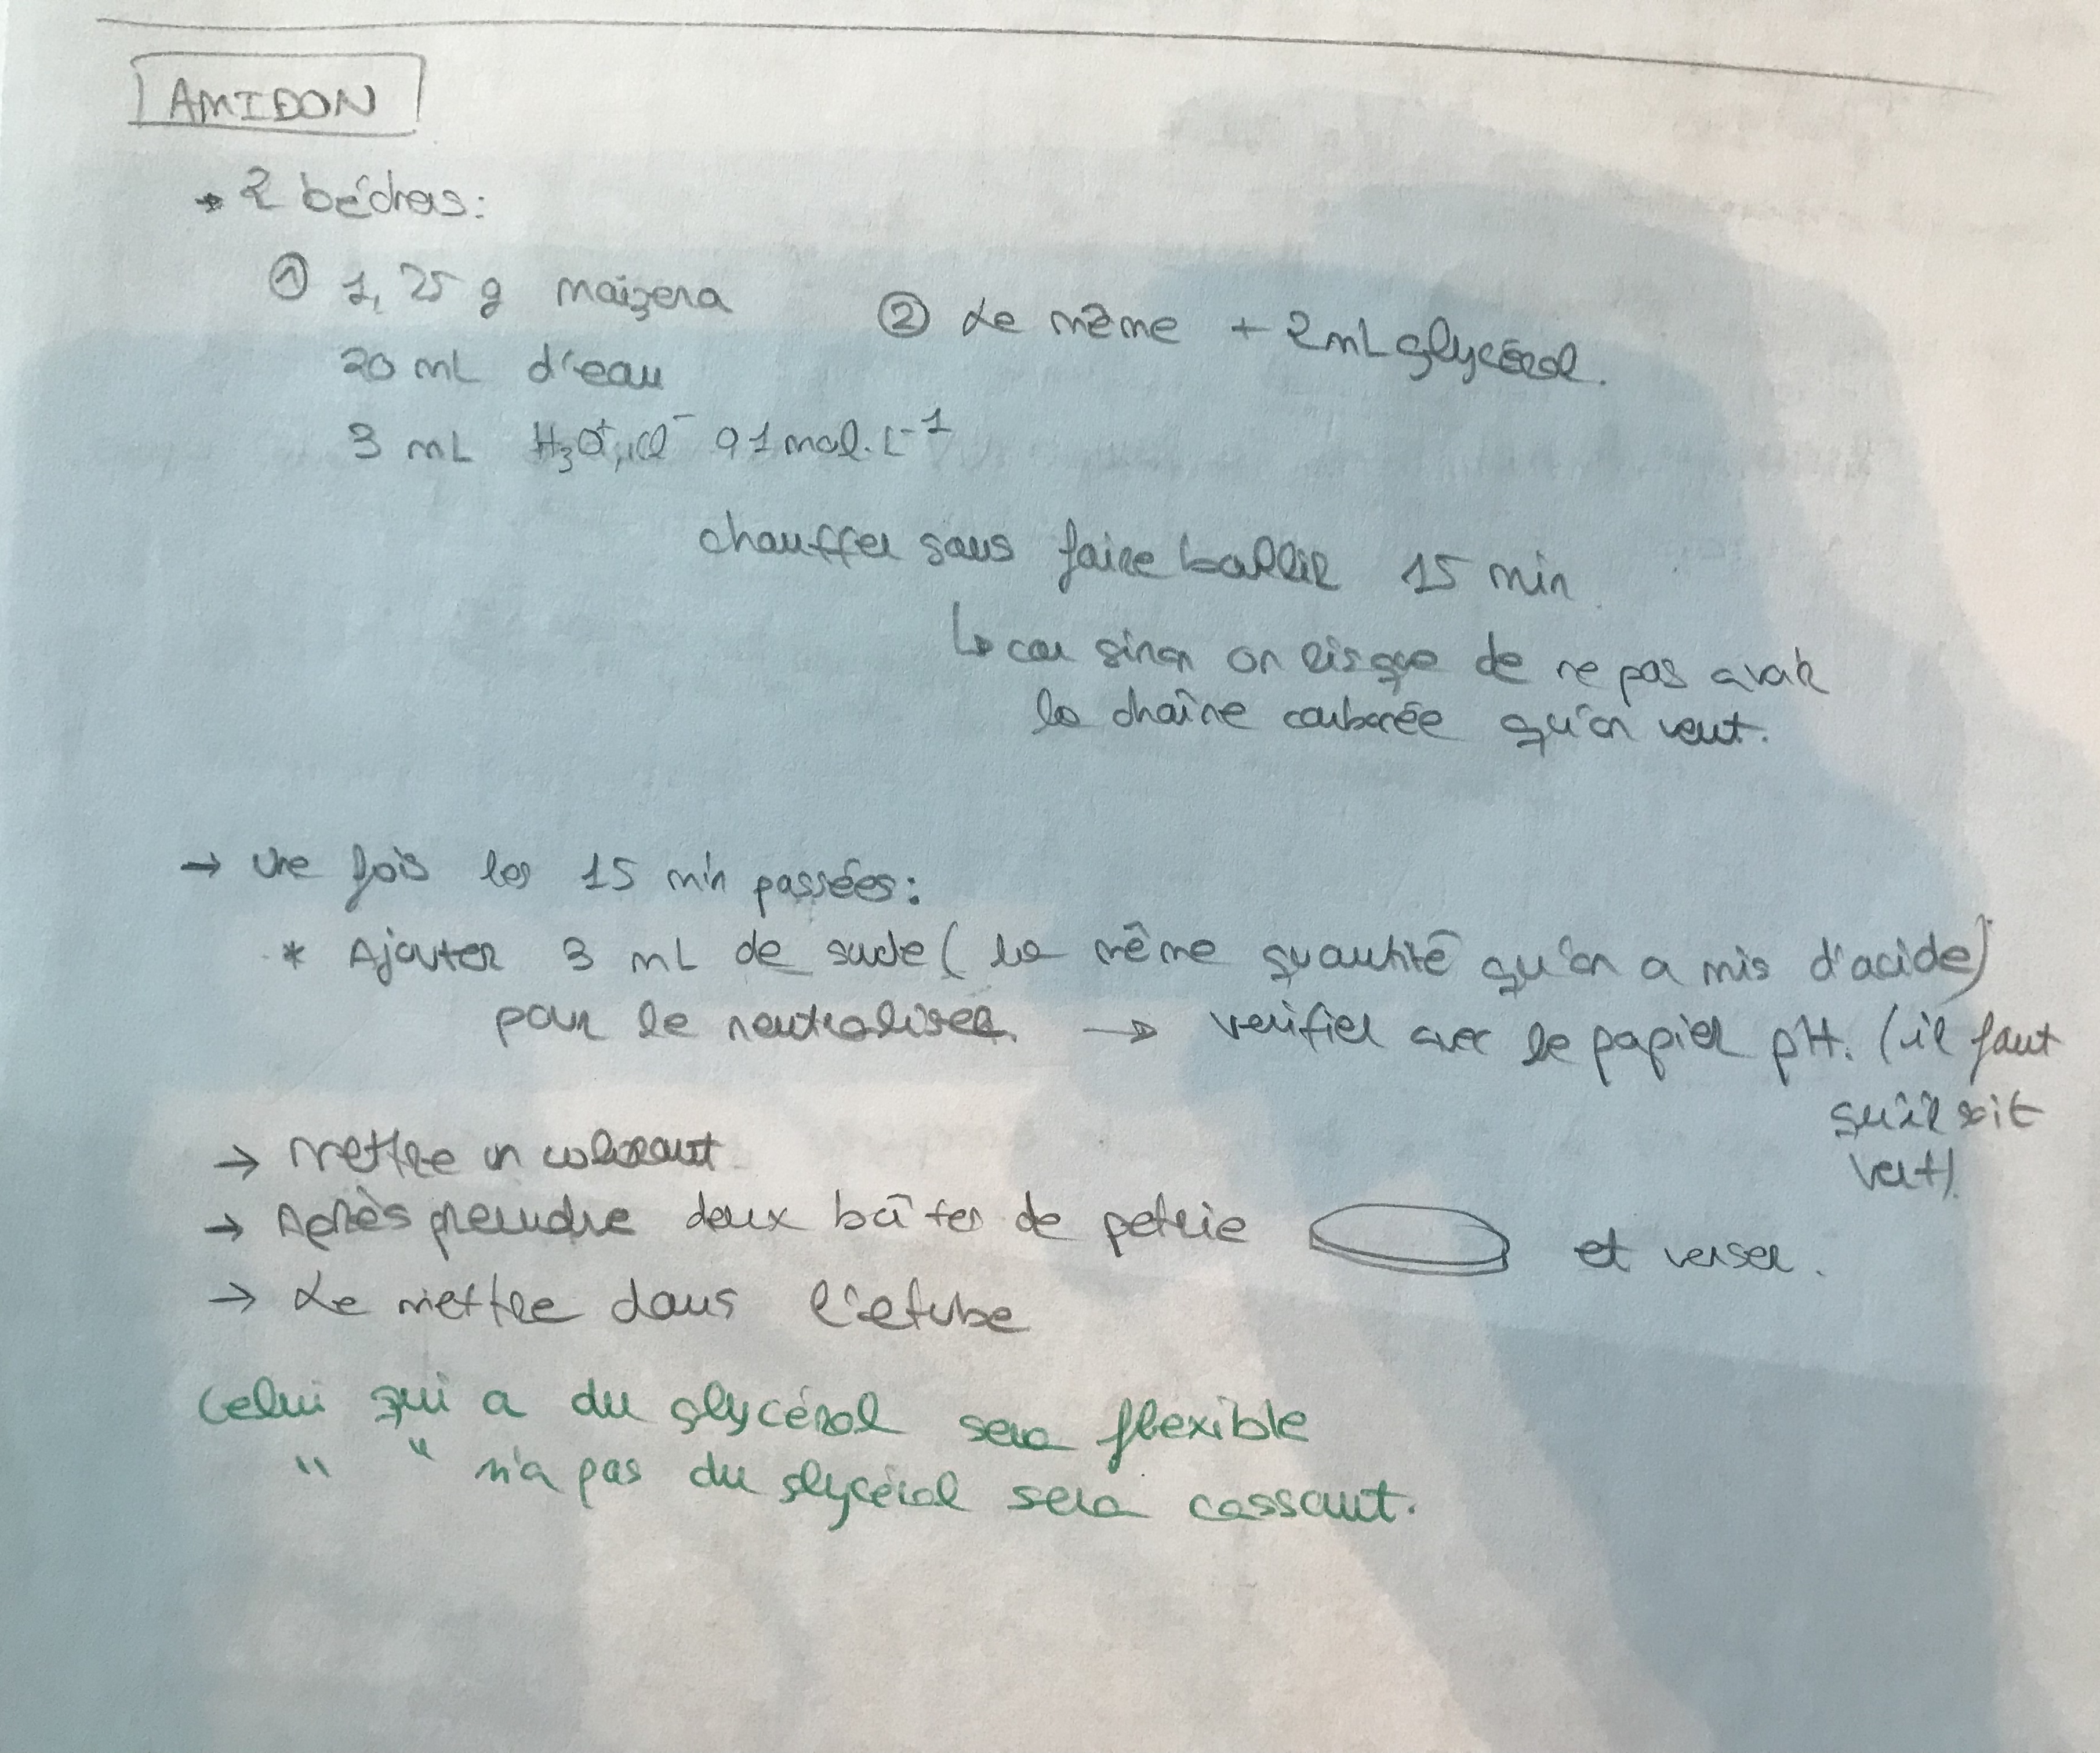 AMIDON
→ 2 béchers:
① 1,25 g maïzena
② Le même + 2mL glycérol.
20 mL d'eau
3 mL H₃O⁺, Cl⁻ 0,1 mol.L⁻¹
chauffer sans faire bouillir 15 min.
↳ car sinon on risque de ne pas avoir
la chaîne carbonée qu'on veut.
→ Une fois les 15 min passées:
* Ajouter 3 mL de soude (la même quantité qu'on a mis d'acide)
pour le neutraliser. → vérifier avec le papier pH. (il faut
qu'il soit
vert).
→ Mettre un colorant
→ Après prendre deux boîtes de petrie et verser.
→ Le mettre dans l'etube
Celui qui a du glycérol sera flexible
" " n'a pas du glycérol sera cassant.